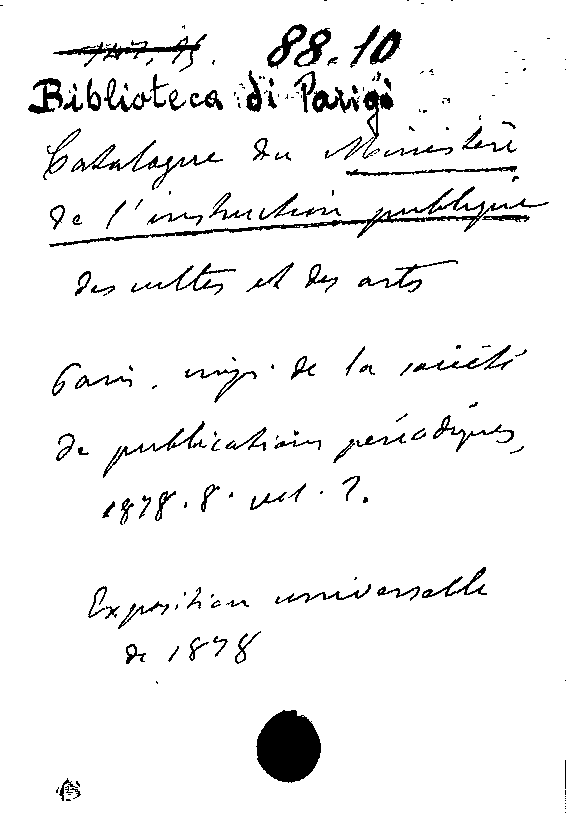 147.95. 88.10
Biblioteca di Parigi
Catalogue du Ministère
de l'instruction publique
des cultes et des arts
Paris. imp. de la société
de publications périodiques,
1878. 8. vol. 2.
Exposition universelle
de 1878